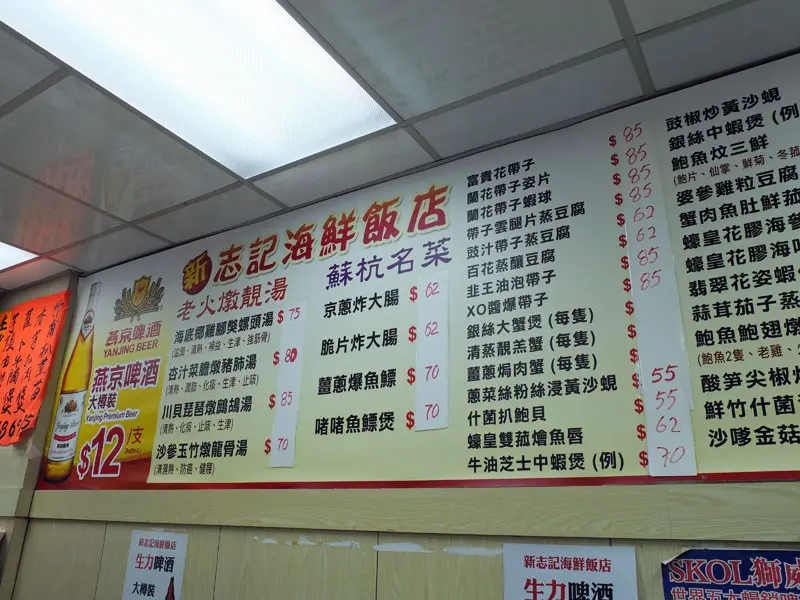 新志記海鮮飯店
燕京啤酒
YANJING BEER
燕京啤酒
大樽裝
Yanjing Premium Beer
$12/支
老火燉靚湯
海底椰雞腳螺頭湯 $75
杏汁菜膽燉豬肺湯 $80
(清熱、潤肺、化痰、生津、止咳)
川貝琵琶燉鷓鴣湯 $85
(清熱、化痰、止咳、生津)
沙參玉竹燉龍骨湯 $70
(清濕熱、防癌、健腰)
蘇杭名菜
京蔥炸大腸 $62
脆片炸大腸 $62
薑蔥爆魚鰾 $70
啫啫魚鰾煲 $70
富貴花帶子 $85
蘭花帶子姿片 $85
蘭花帶子蝦球 $85
帶子雲腿片蒸豆腐 $85
豉汁帶子蒸豆腐 $62
百花蒸釀豆腐 $62
韭王油泡帶子 $85
XO醬爆帶子 $85
銀絲大蟹煲 (每隻) $
清蒸靚羔蟹 (每隻) $
薑蔥焗肉蟹 (每隻) $
蔥菜絲粉絲浸黃沙蜆 $55
什菌扒鮑貝 $55
蠔皇雙菇燴魚唇 $62
牛油芝士中蝦煲 (例) $70
豉椒炒黃沙蜆
銀絲中蝦煲 (例
鮑魚炆三鮮
(鮑片、仙掌、鮮菊、冬菇
婆參雞粒豆腐
蟹肉魚肚鮮菇
蠔皇花膠海參
蠔皇花膠海
翡翠花姿蝦
蒜茸茄子蒸
鮑魚鮑翅燉
(鮑魚2隻、老雞、
酸筍尖椒炒
鮮竹什菌
沙嗲金菇
新志記海鮮飯店
生力啤酒
大樽裝
新志記海鮮飯店
生力啤酒
SKOL獅威